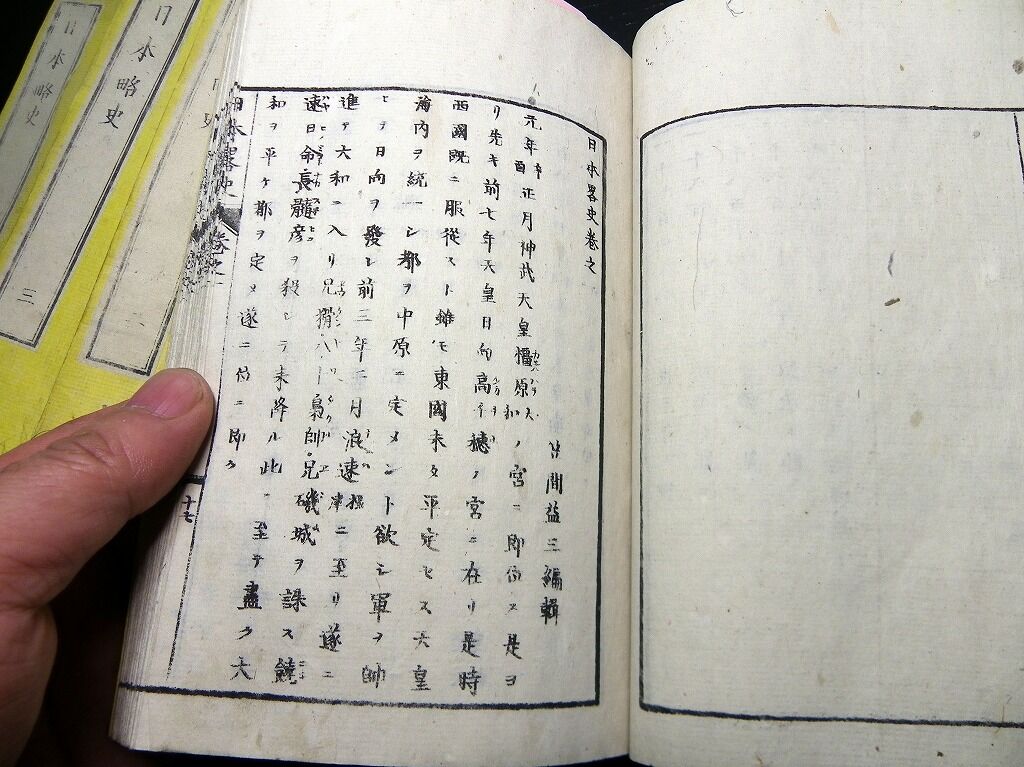 日本畧史卷之
笠間益三編輯
元年辛酉正月神武天皇橿原大和ノ宮ニ即位ス是ヨ
リ先キ前七年天皇日向高千穗ノ宮ニ在リ是時
西國既ニ服從スト雖モ東國未タ平定セス天皇
海内ヲ統一シ都ヲ中原ニ定メント欲シ軍ヲ帥
ヒテ日向ヲ發シ前三年二月浪速ニ至リ遂ニ
進テ大和ニ入リ兄猾八十梟帥兄磯城ヲ誅ス饒
速日命長髓彦ヲ殺シテ來降ル此ニ至テ盡ク大
和ヲ平ケ都ヲ定メ遂ニ位ニ即ク
日本畧史 卷之
十七
日本略史 二
日本略史 三